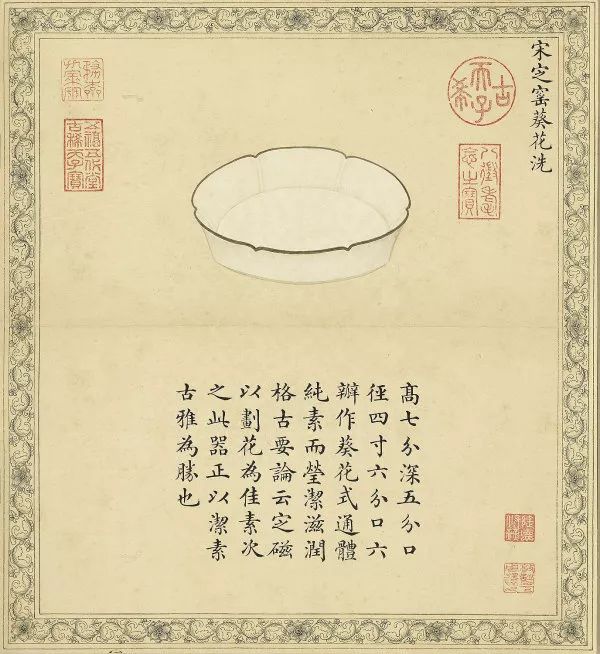 宋㝎窰葵花洗
古希天子
八徵耄念之寶
五福五代堂古稀天子寶
髙七分深五分口
徑四寸六分口六
瓣作葵花式通體
純素而瑩潔滋潤
格古要論云㝎磁
以劃花為佳素次
之此器正以潔素
古雅為勝也